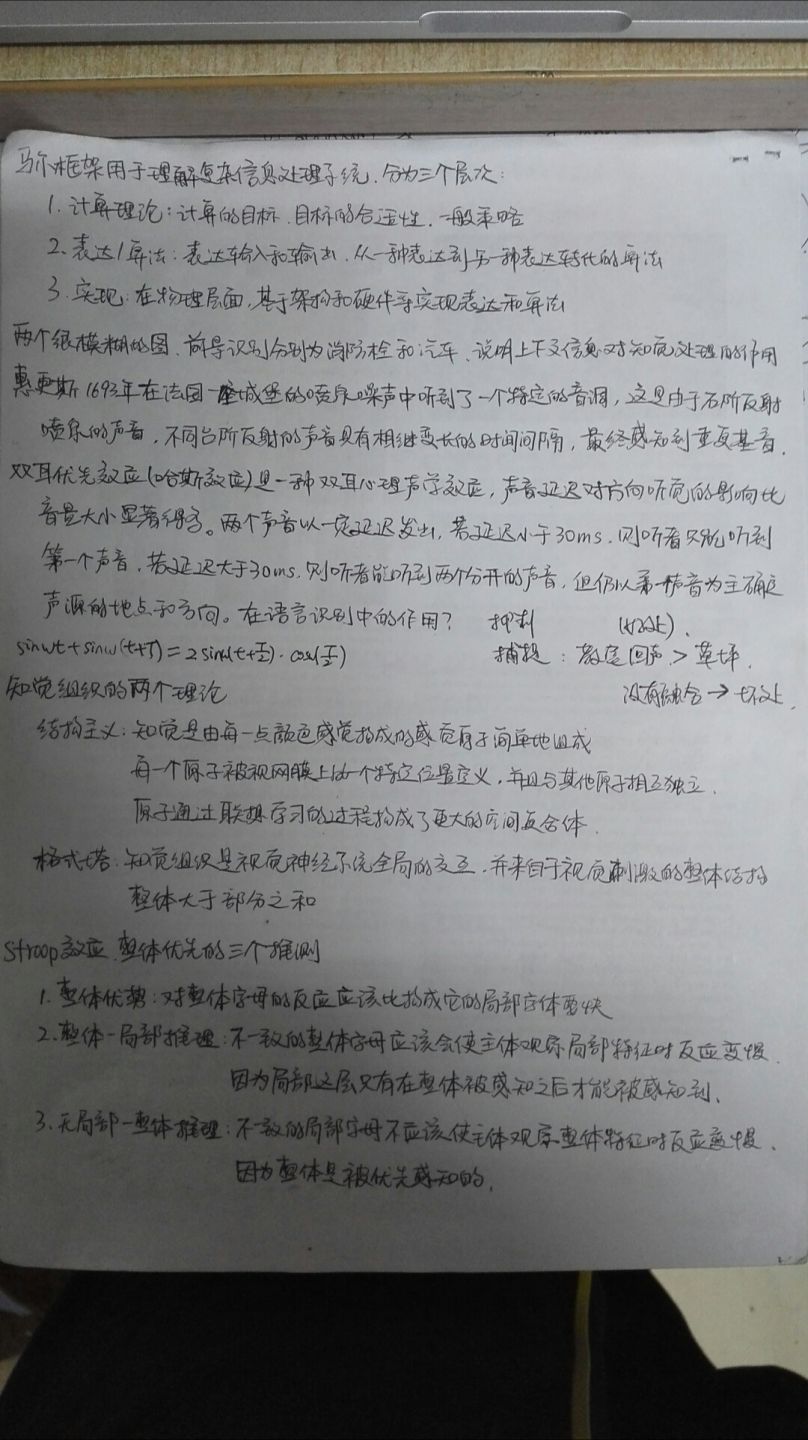 马尔框架用于理解复杂信息处理系统,分为三个层次:
1. 计算理论:计算的目标、目标的合适性、一般策略
2. 表达/算法:表达输入和输出,从一种表达到另一种表达转化的算法
3. 实现:在物理层面,基于架构和硬件等实现表达和算法
两个很模糊的图、前导识别分别为消防栓和汽车、说明上下文信息对知觉处理的作用
惠更斯1693年在法国一座城堡的喷泉噪声中听到了一个特定的音调,这是由于石阶反射
喷泉的声音,不同台阶反射的声音具有相继变长的时间间隔,最终感知到重复基音.
双耳优先效应(哈斯效应)是一种双耳心理声学效应,声音延迟对方向听觉的影响比
音量大小显著得多。两个声音以一定延迟发出,若延迟小于30ms,则听者只能听到
第一个声音,若延迟大于30ms,则听者能听到两个分开的声音,但仍以第一声音为主确定
声源的地点和方向。在语言识别中的作用? 抑制 (好处).
sinwt+sinw(t+T)=2sinw(t+T/2)·cos(T/2) 捕捉:教室回声>草坪.
知觉组织的两个理论 没有融合→坏处.
结构主义:知觉是由每一点颜色感觉构成的感觉原子简单地组成
每一个原子被视网膜上的一个特定位置定义,并且与其他原子相互独立.
原子通过联想学习的过程构成了更大的空间复合体.
格式塔:知觉组织是视觉神经系统全局的交互,并来自于视觉刺激的整体结构
整体大于部分之和
Stroop效应、整体优先的三个推测
1. 整体优势:对整体字母的反应应该比构成它的局部字体要快
2. 整体-局部推理:不一致的整体字母应该会使主体观察局部特征时反应变慢.
因为局部这层只有在整体被感知之后才能被感知到.
3. 无局部-整体推理:不一致的局部字母不应该使主体观察整体特征时反应变慢.
因为整体是被优先感知的.